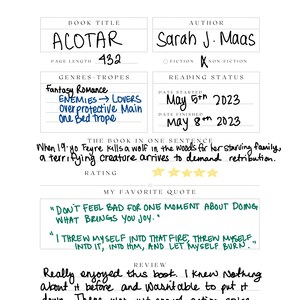 BOOK TITLE
ACOTAR
AUTHOR
Sarah J. Maas
PAGE LENGTH 432
FICTION NON-FICTION
GENRES-TROPES
Fantasy Romance
ENEMIES → LOVERS
overprotective Main
one Bed Trope
READING STATUS
DATE STARTED
May 5th 2023
DATE FINISHED
May 8th 2023
THE BOOK IN ONE SENTENCE
When 19-yo Feyre kills a wolf in the woods for her starving family,
a terrifying creature arrives to demand retribution.
RATING
MY FAVORITE QUOTE
"DON'T FEEL BAD FOR ONE MOMENT ABOUT DOING
WHAT BRINGS YOU JOY."
"I THREW MYSELF INTO THAT FIRE, THREW MYSELF
INTO IT, INTO HIM, AND LET MYSELF BURN."
REVIEW
Really enjoyed this book. I knew nothing
about it before and was